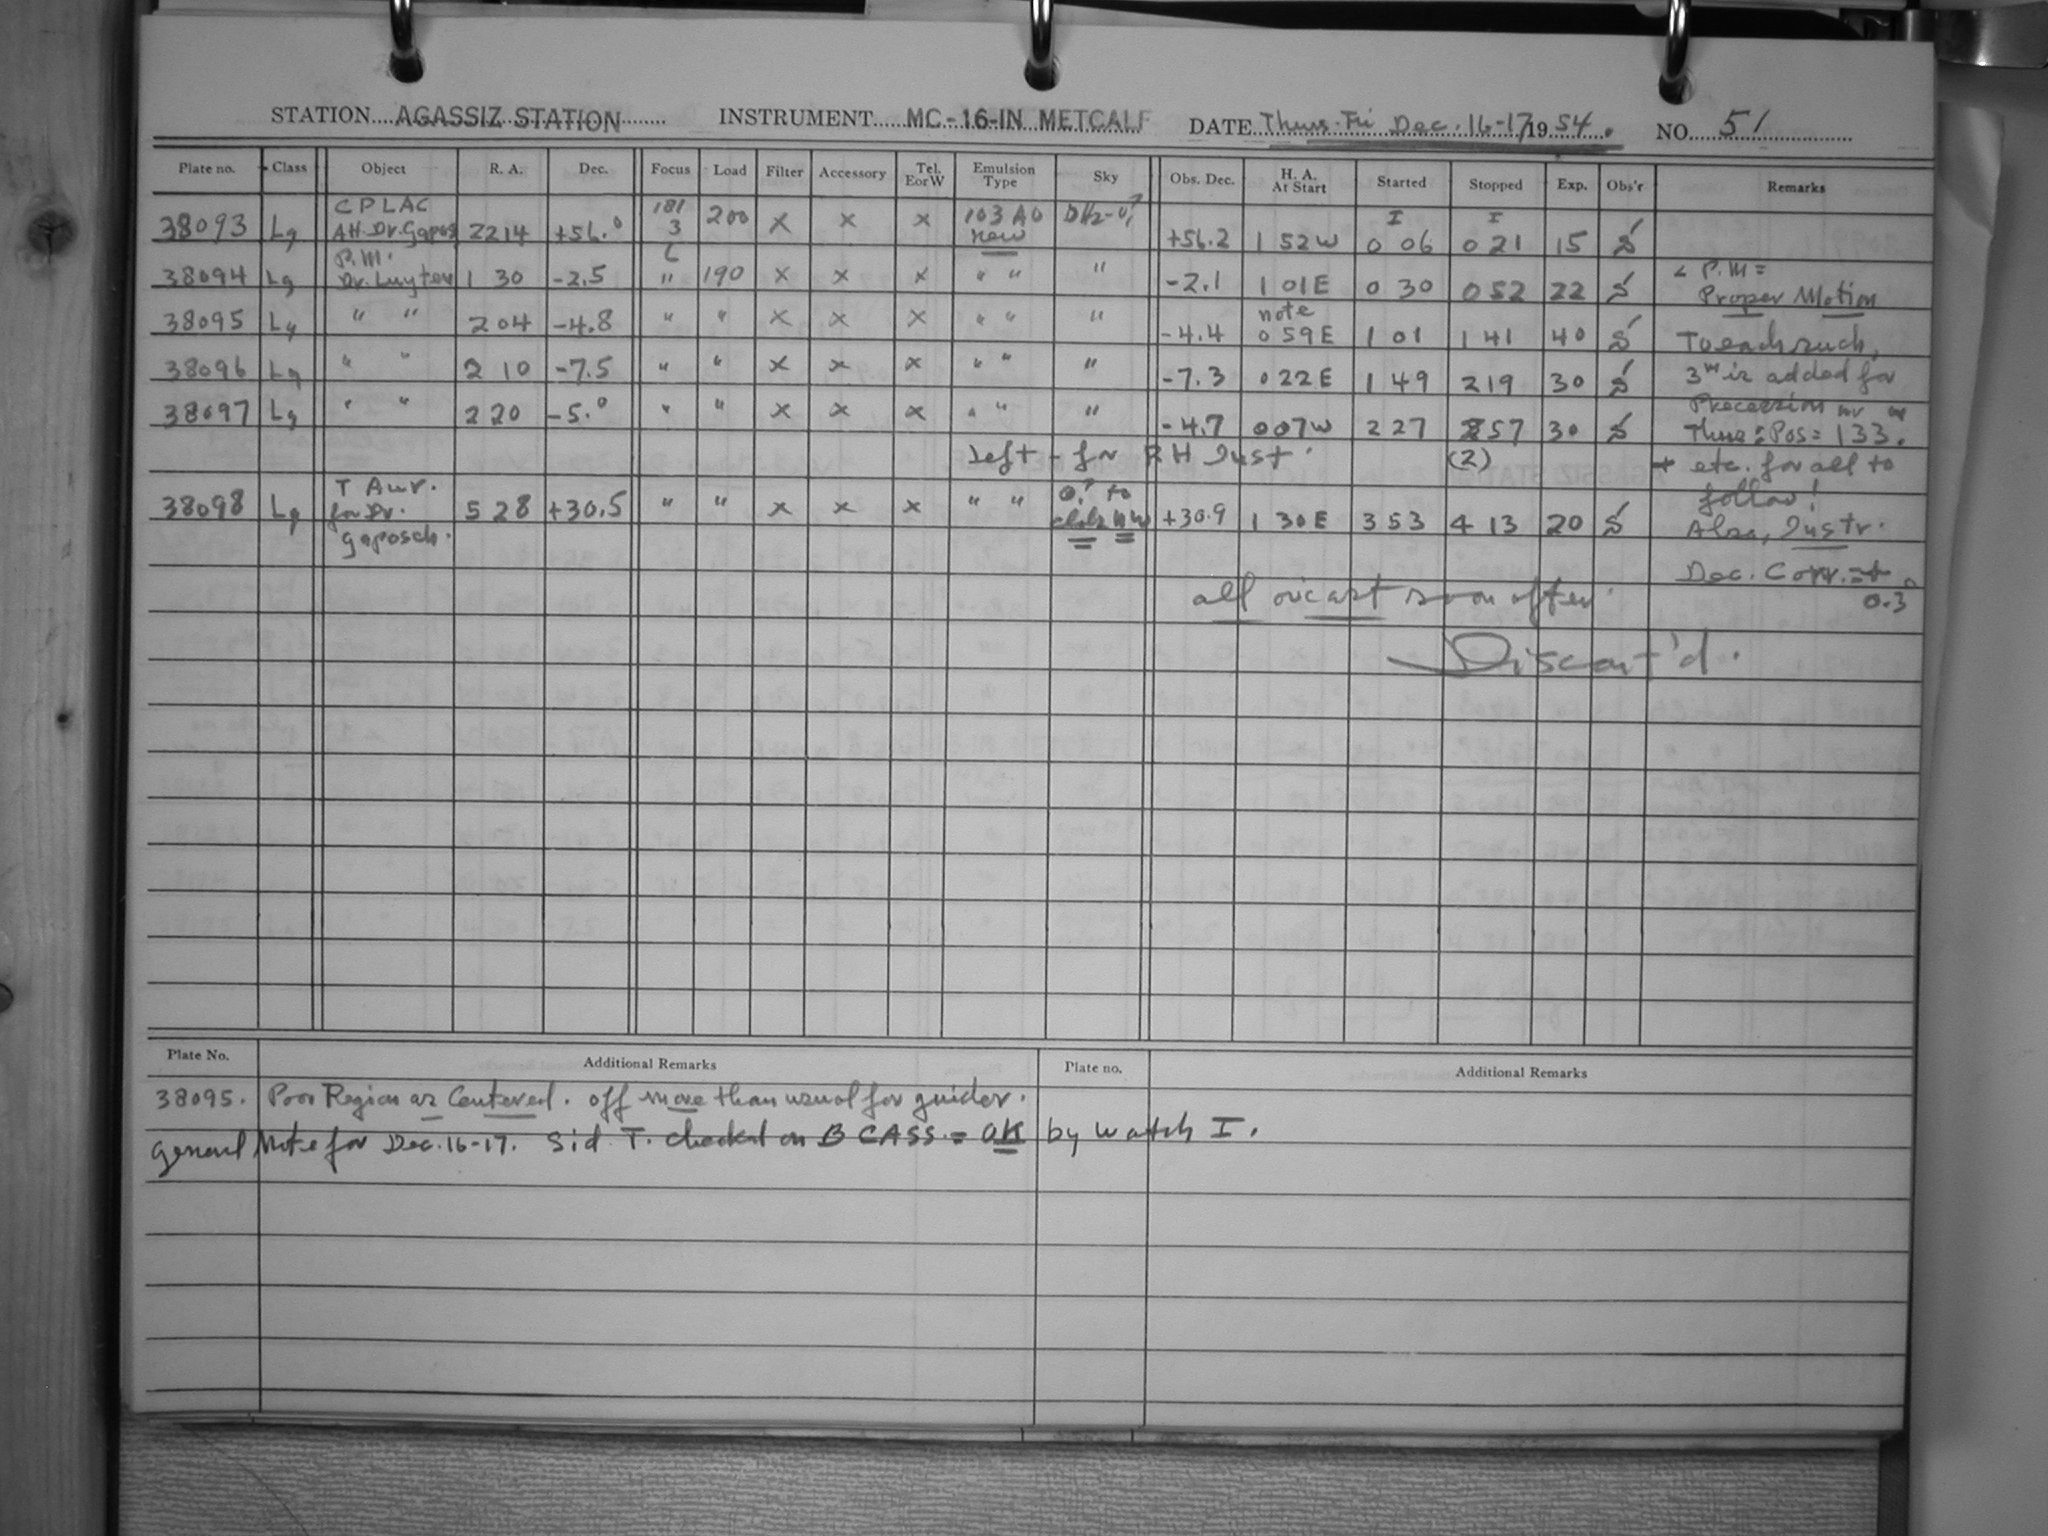 STATION AGASSIZ STATION INSTRUMENT MC-16-IN METCALF DATE Thurs-Fri Dec. 16-17, 1954. NO. 51
Plate no. Class Object R. A. Dec. Focus Load Filter Accessory Tel. E or W Emulsion Type Sky Obs. Dec. H. A. At Start Started Stopped Exp. Obs'r Remarks
CP LAC 181 I I
38093 Lg AH-Dr. Gapos 2214 +56.° 3 200 X X X 103 AO new +56.2 1 52W 0 06 0 21 15
P.M.
38094 Lg Dr. Luyten 1 30 -2.5 " 190 X X X " " " -2.1 1 01E 0 30 0 52 22 P.M =
Proper Motion
note
38095 Lg " " 2 04 -4.8 " " X X X " " " -4.4 0 59E 1 01 1 41 40 To each such,
38096 Lg " " 2 10 -7.5 " " X X X " " " -7.3 0 22E 1 49 2 19 30 3m is added for
Precession
38097 Lg " " 2 20 -5.° " " X X X " " " -4.7 0 07W 2 27 2 57 30 Thus: Pos = 133.
Left - for RH Inst. (2) etc. for all to
follow!
T Aur.
38098 Lg for Dr. 5 28 +30.5 " " X X X " " +30.9 1 30E 3 53 4 13 20 Also, Instr.
Gaposch.
Dec. Corr. = + 0.3°
all ovicast soon after.
Discont'd.
Plate No. Additional Remarks Plate no. Additional Remarks
38095. Poor Region as Centered. off more than usual for guider.
General Note for Dec. 16-17. Sid. T. checked on B CASS. = OK by watch I.